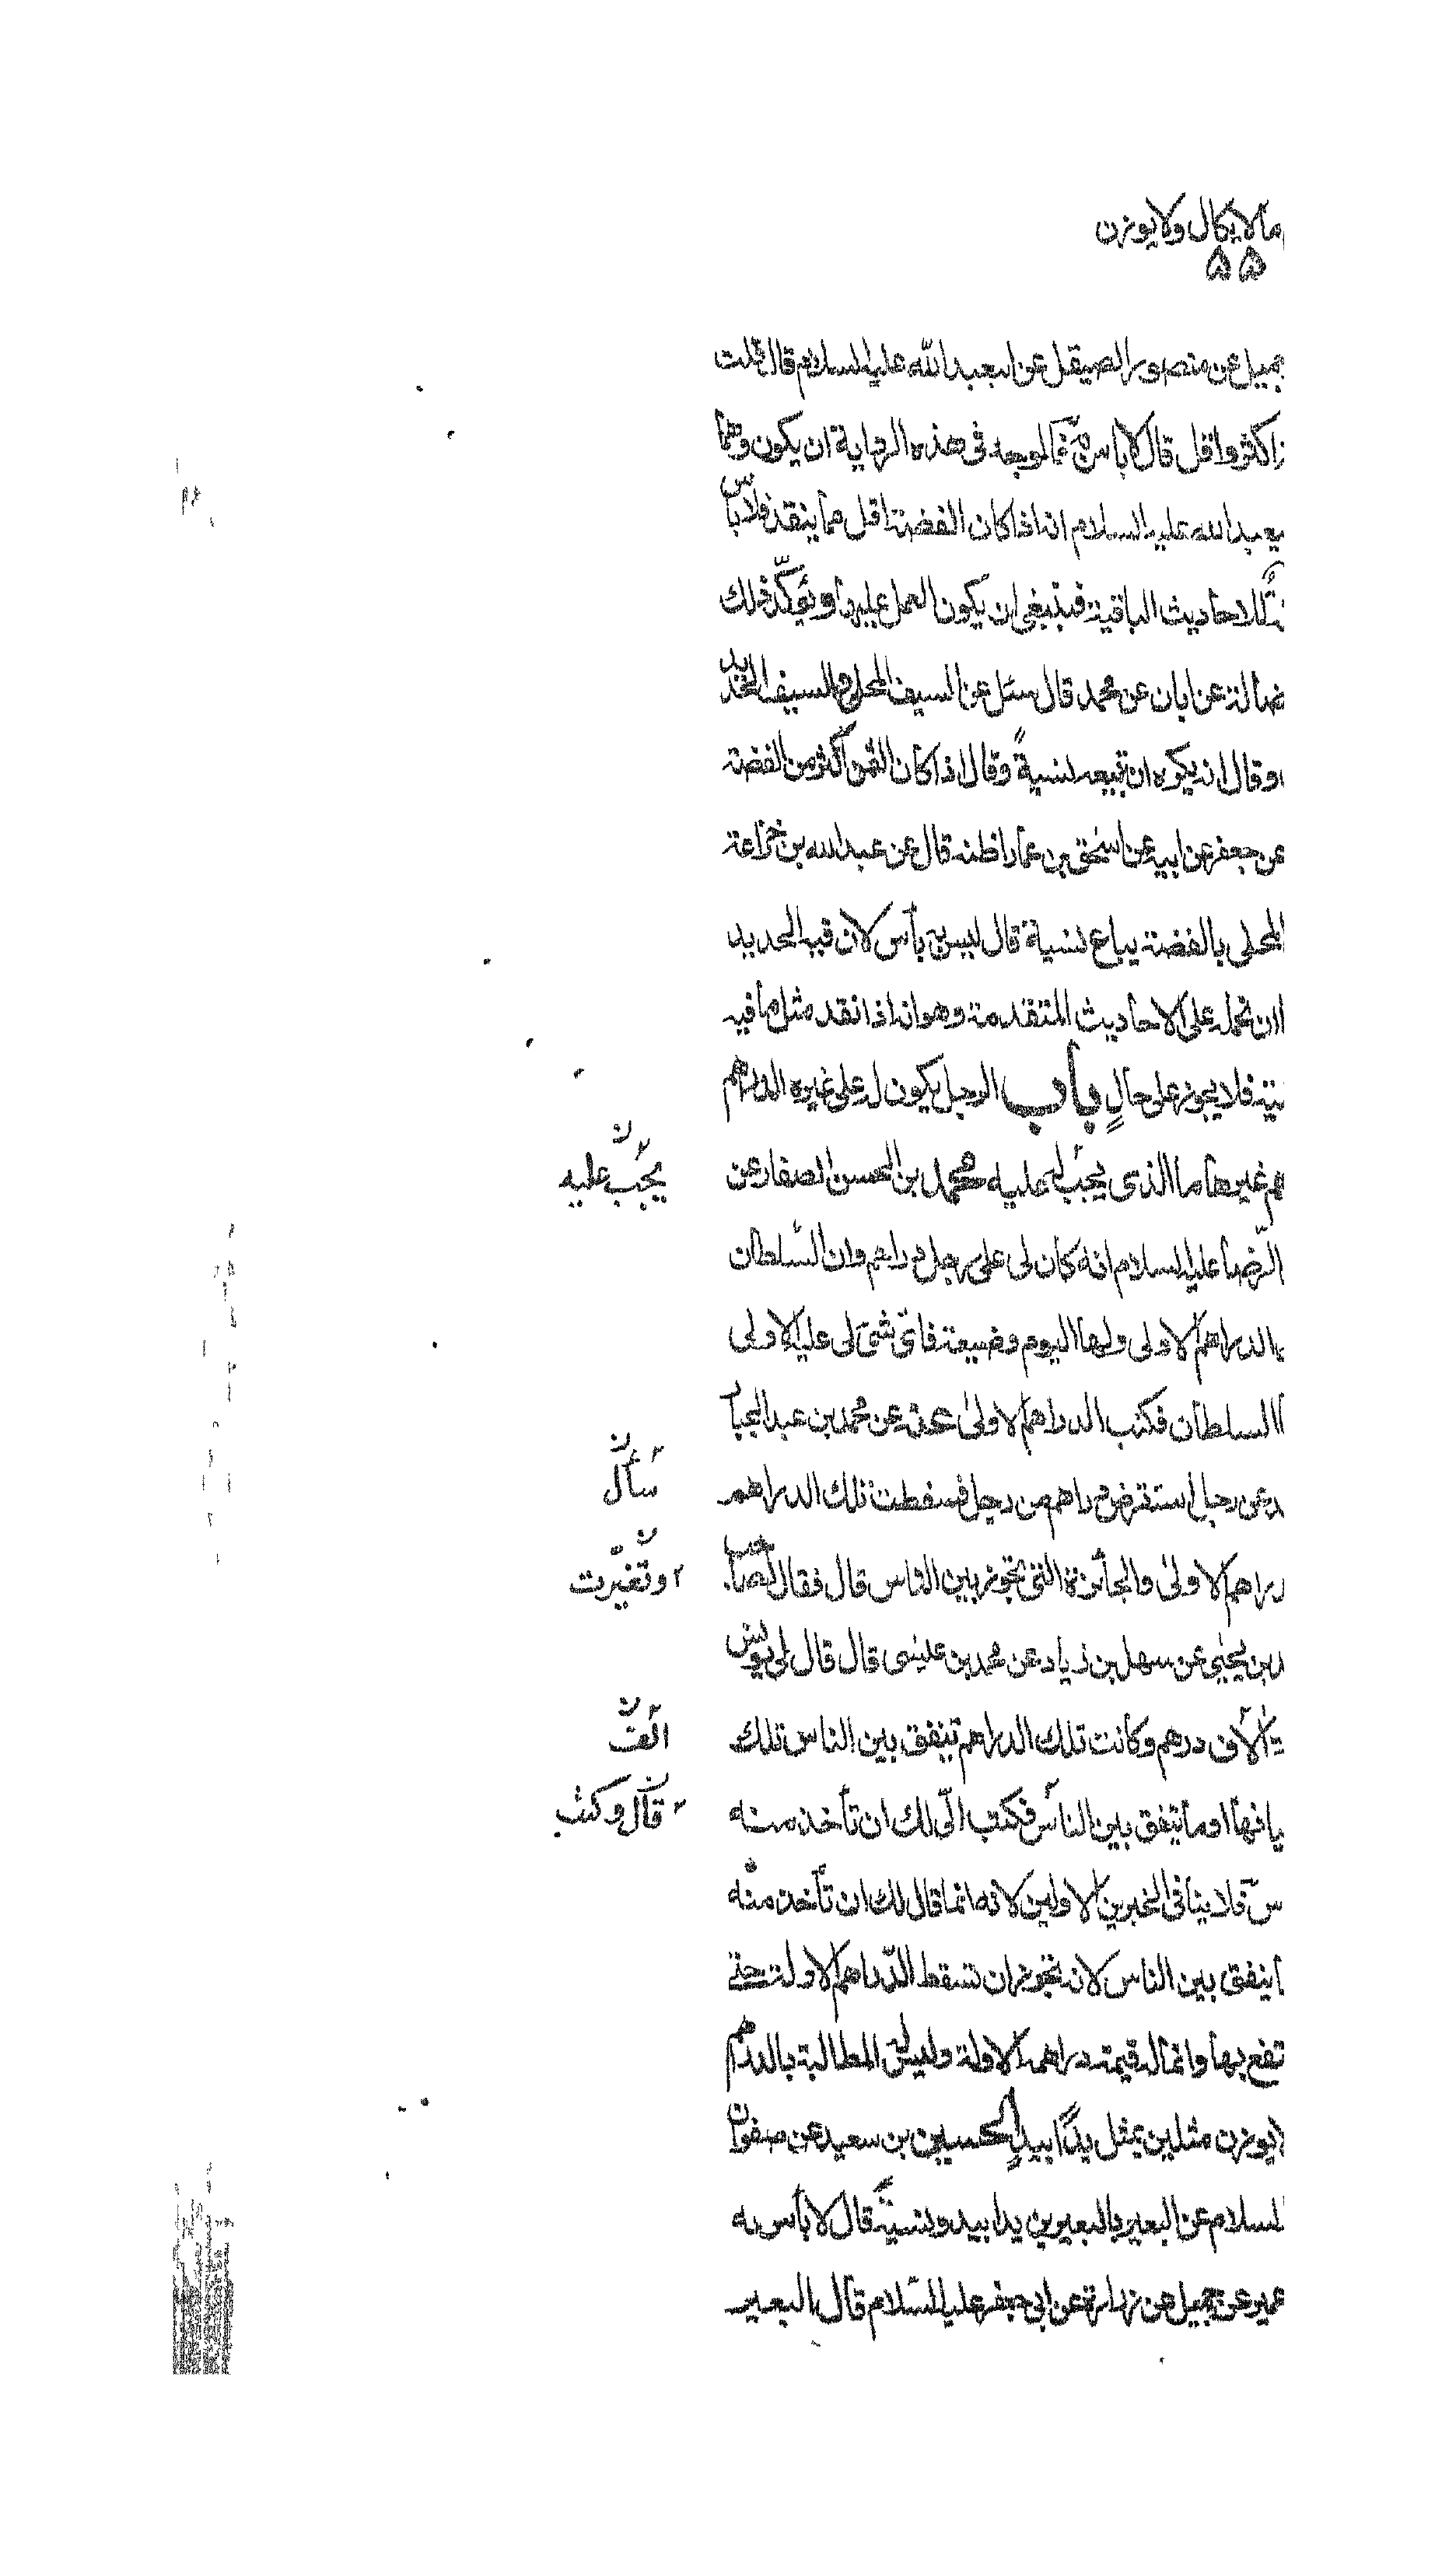 ما لا يكال ولا يوزن
۵۵
جميل عن منصور الصيقل عن ابيعبد الله عليه السلام قال قلت
اكثر واقل قال لا باس به فالوجه فى هذه الرواية ان يكون وهما
بيعبد الله عليه السلام انه اذا كان الفضة اقل مما ينقد فلا باس
للاحاديث الباقية فينبغى ان يكون العمل عليها ويؤكد ذلك
فضالة عن ابان عن محمد قال سئل عن السيف المحلى والسيف الحديد
وقال انه يكره ان تبيعه بنسية وقال اذا كان الثمن اكثر من الفضة
عن جعفر عن ابيه عن اسحق بن عمار اظنه قال عن عبد الله بن خزاعة
المحلى بالفضة يباع نسية قال ليس به بأس لان فيه الحديد
ان نحمله على الاحاديث المتقدمة وهو انه اذا نقد مثل ما فيه
فلا يجوز على حال باب الرجل يكون له على غيره الدراهم
غيرها ما الذى يجب له عليه محمد بن الحسن الصفار عن
يجب عليه
الرضا عليه السلام انه كان لى على رجل دراهم وان السلطان
الدراهم الاولى ولها اليوم وضيعة فاى شئ لى عليه الاولى
السلطان فكتب الدراهم الاولى عنه عن محمد بن عبد الجبار
عن رجل استقرض دراهم من رجل فسقطت تلك الدراهم
سأل
دراهم الاولى والجائزة التى تجوز بين الناس قال فقال لصاحب
وتغيرت
بن يحيى عن سهل بن زياد عن محمد بن عيسى قال قال لى يونس
الآف درهم وكانت تلك الدراهم تنفق بين الناس تلك
الف
او ما ينفق بين الناس فكتب الى لك ان تأخذ منه
قال وكتب
فلا ينافى الخبرين الاولين لانه انما قال لك ان تأخذ منه
ينفق بين الناس لانه يجوز ان تسقط الدراهم الاولة حتى
بها وانما له قيمة دراهمه الاولة وليس له المطالبة بالدراهم
يوزن مثلين بمثل يدا بيد الحسين بن سعيد عن صفوان
السلام عن البعير بالبعيرين يدا بيد ونسية قال لا بأس به
عمير عن جميل عن زرارة عن ابى جعفر عليه السلام قال البعير